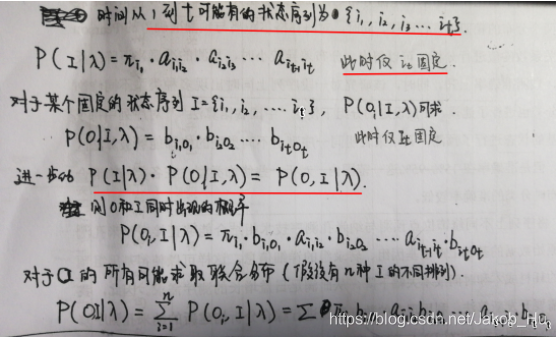 时间从1到t可能有的状态序列为 {i₁, i₂, i₃ ... i_t}
P(I|λ) = π_{i₁} · a_{i₁i₂} · a_{i₂i₃} ... a_{i_{t-1}i_t} 此时仅 i_t 固定.
对于某个固定的状态序列 I={i₁, i₂, .... i_t}, P(O|I,λ)可求.
P(O|I,λ) = b_{i₁o₁} · b_{i₂o₂} .... b_{i_to_t} 此时仅 固定
进一步 P(I|λ) · P(O|I,λ) = P(O,I|λ).
则O和I同时出现的概率
P(O,I|λ) = π_{i₁} · b_{i₁o₁} · a_{i₁i₂} · b_{i₂o₂} .... a_{i_{t-1}i_t} · b_{i_to_t}
对于 的所有可能求取联合分布 (假设有n种I的不同排列).
P(O|λ) = Σ_{i=1}^{n} P(O,I|λ) = Σ π_{i₁} b_{i₁o₁} ... a_{i_{t-1}i_t} · b_{i_to_t}
https://blog.csdn.net/Jakop_Hu